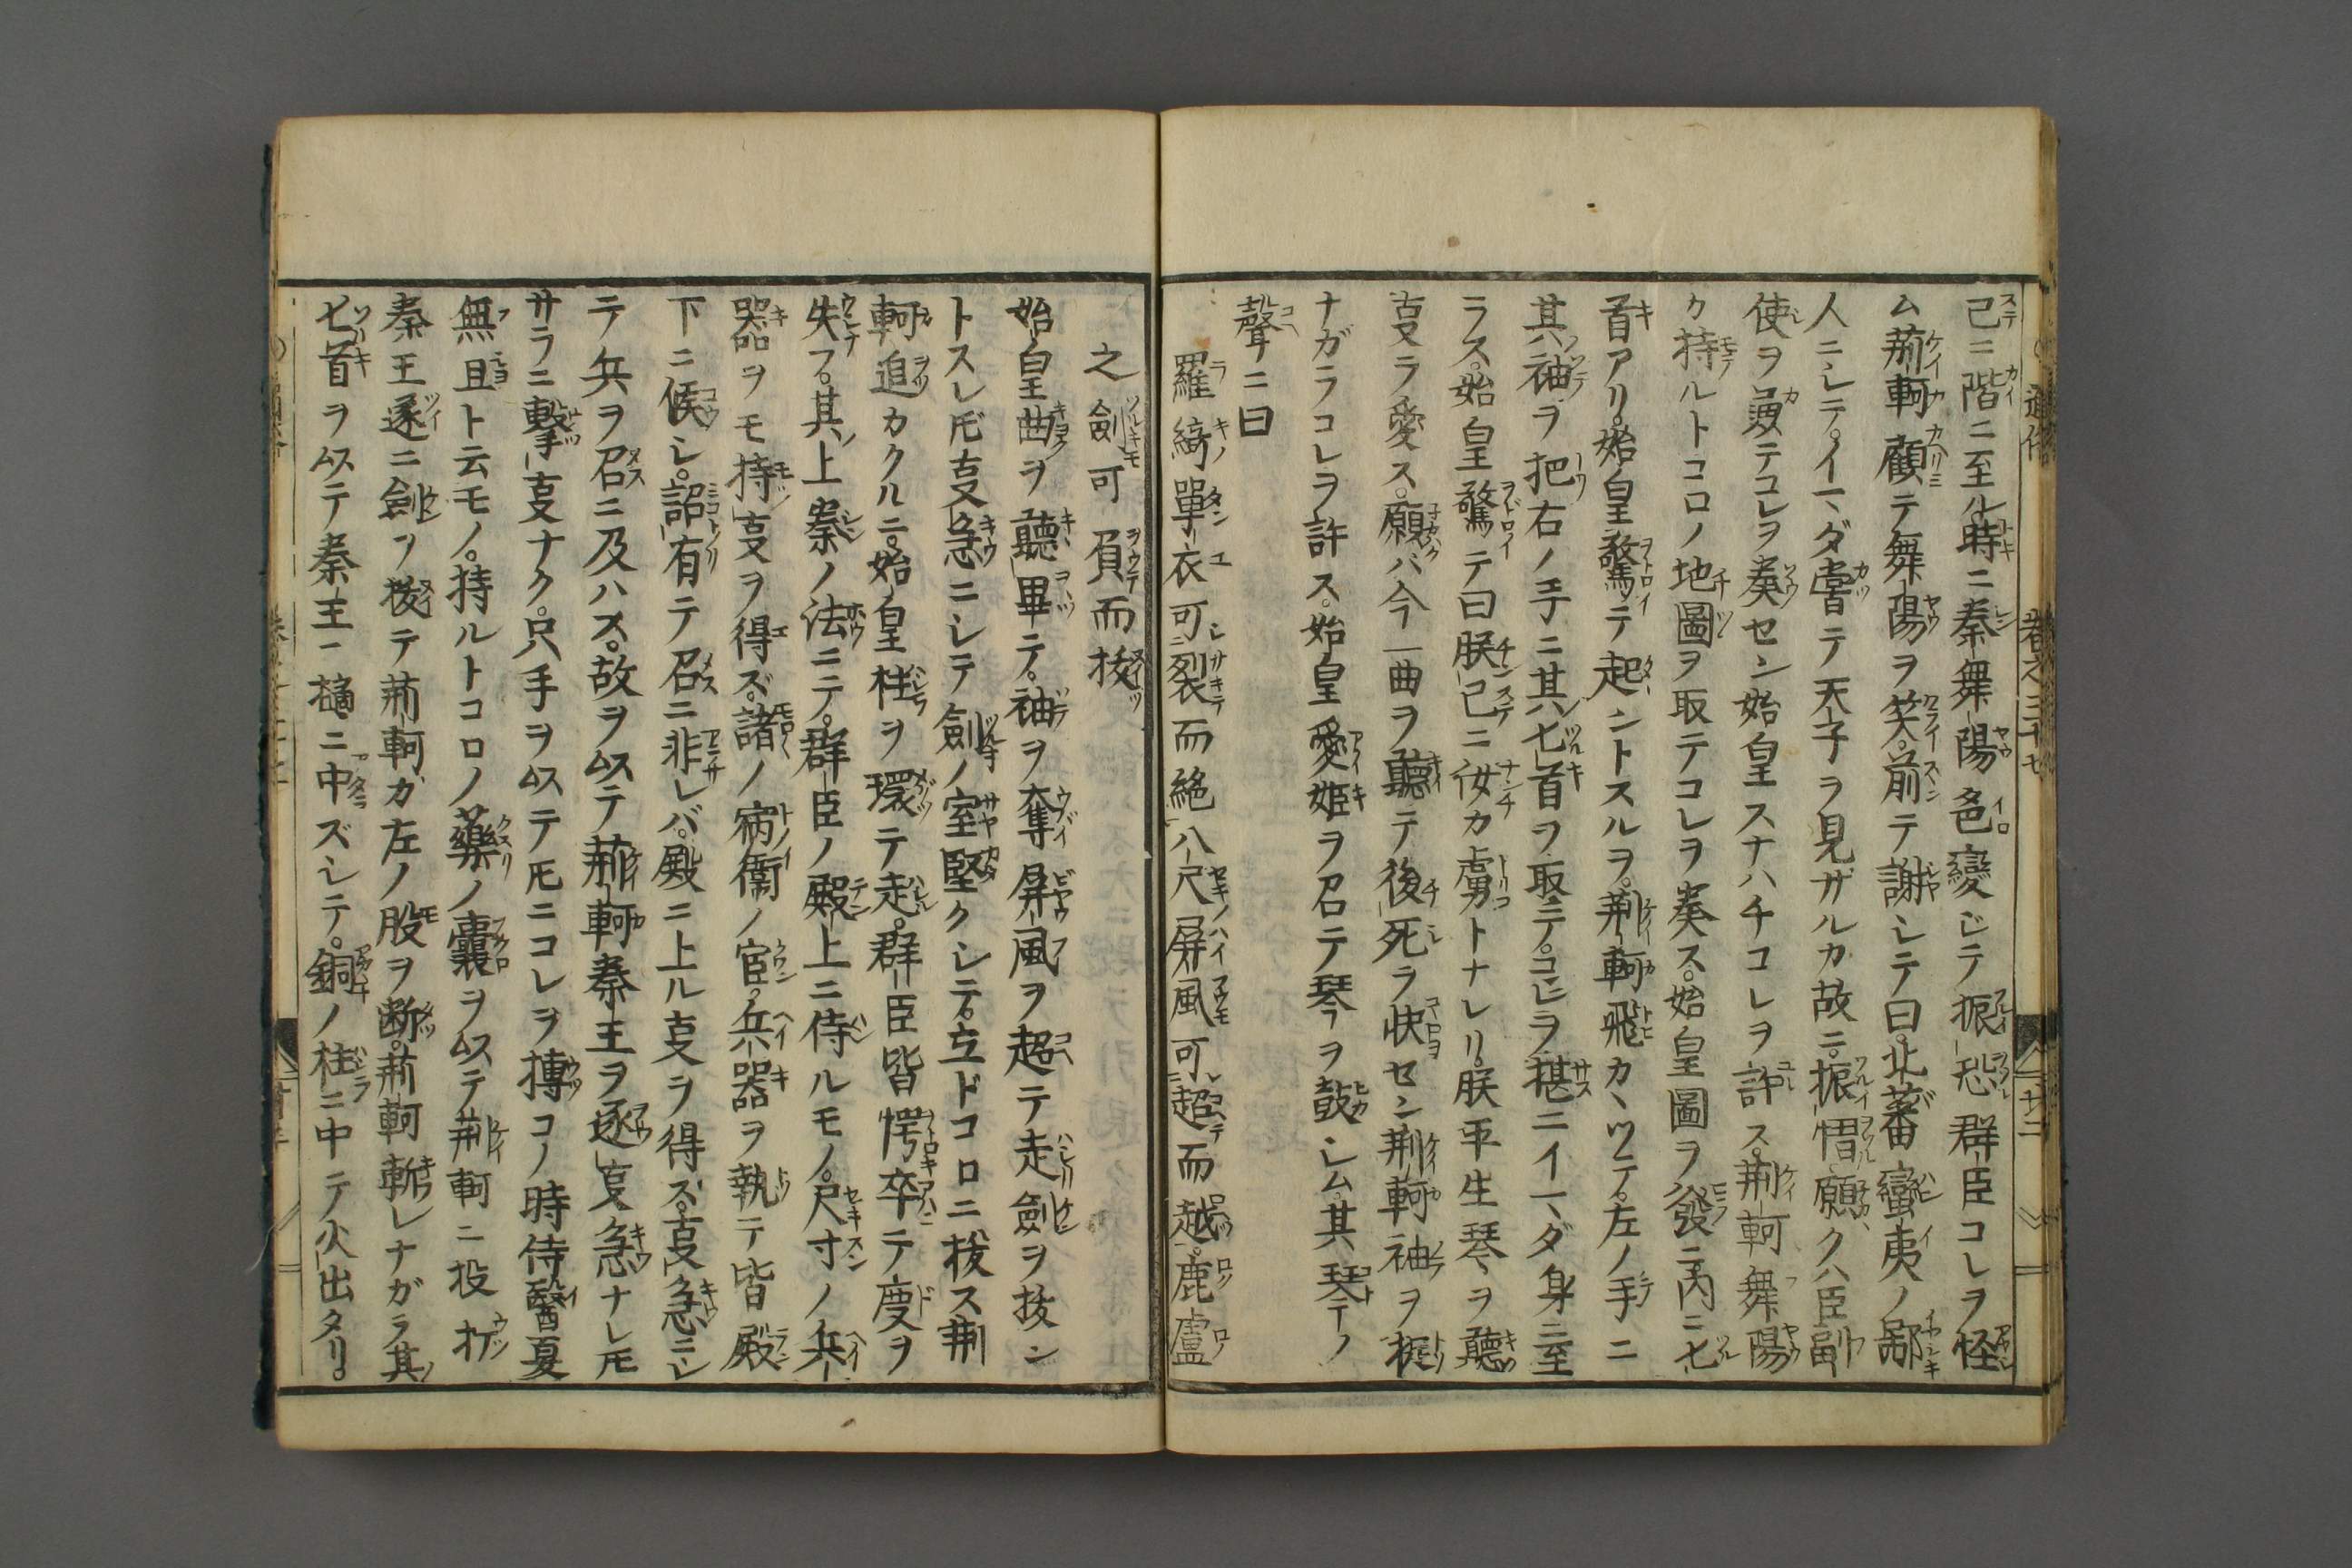 已ニ階ニ至ル時ニ秦舞陽色變ジテ振恐群臣コレヲ怪
ム荊軻顧テ舞陽ヲ笑前テ謝シテ曰北蕃蠻夷ノ鄙
人ニシテイマダ甞テ天子ヲ見ザルカ故ニ振慴願クハ臣副
使ヲ シテコレヲ奏セン始皇スナハチコレヲ許ス荊軻舞陽
カ持ルトコロノ地圖ヲ取テコレヲ奏ス始皇圖ヲ發ニ内ニ匕
首アリ始皇驚テ起ントスルヲ荊軻飛カヽツテ左ノ手ニ
其袖ヲ把右ノ手ニ其匕首ヲ取テコレヲ揕ニイマダ身ニ至
ラス始皇驚テ曰朕已ニ汝カ虜トナレリ朕平生琴ヲ聽
叓ヲ愛ス願ハ今一曲ヲ聽テ後死ヲ快セン荊軻袖ヲ扼
ナガラコレヲ許ス始皇愛姫ヲ召テ琴ヲ鼓シム其琴ノ
聲ニ曰
羅綺單衣可裂而絶八尺屏風可超而越鹿盧
之劍可負而拔
始皇曲ヲ聽畢テ袖ヲ奪屏風ヲ超テ走劍ヲ拔ン
トスレ𪜈叓急ニシテ劍ノ室堅クシテ立ドコロニ拔ス荊
軻追カクルニ始皇柱ヲ環テ走群臣皆愕卒テ度ヲ
失フ其上秦ノ法ニテ群臣ノ殿上ニ侍ルモノ尺寸ノ兵
器ヲモ持叓ヲ得ズ諸ノ 衞ノ宦兵器ヲ執テ皆殿
下ニ候シ詔有テ召ニ非レバ殿ニ上ル叓ヲ得ズ叓急ニシ
テ兵ヲ召ニ及ハス故ヲ以テ荊軻秦王ヲ逐叓急ナレ𪜈
サラニ擊叓ナク只手ヲ以テ𪜈ニコレヲ搏コノ時侍醫夏
無且ト云モノ持ルトコロノ藥ノ囊ヲ以テ荊軻ニ投打
秦王遂ニ劍ヲ拔テ荊軻カ左ノ股ヲ断荊軻斬レナガラ其
匕首ヲ以テ秦王ニ擿ニ中ズシテ銅ノ柱ニ中テ火出タリ